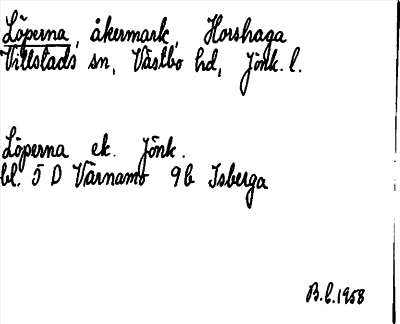 Löperna, åkermark, Horshaga
Villstads sn, Västbo hd, Jönk. l.
Löperna ek. Jönk.
bl. 5 D Värnamo 9b Isberga
B.L. 1958